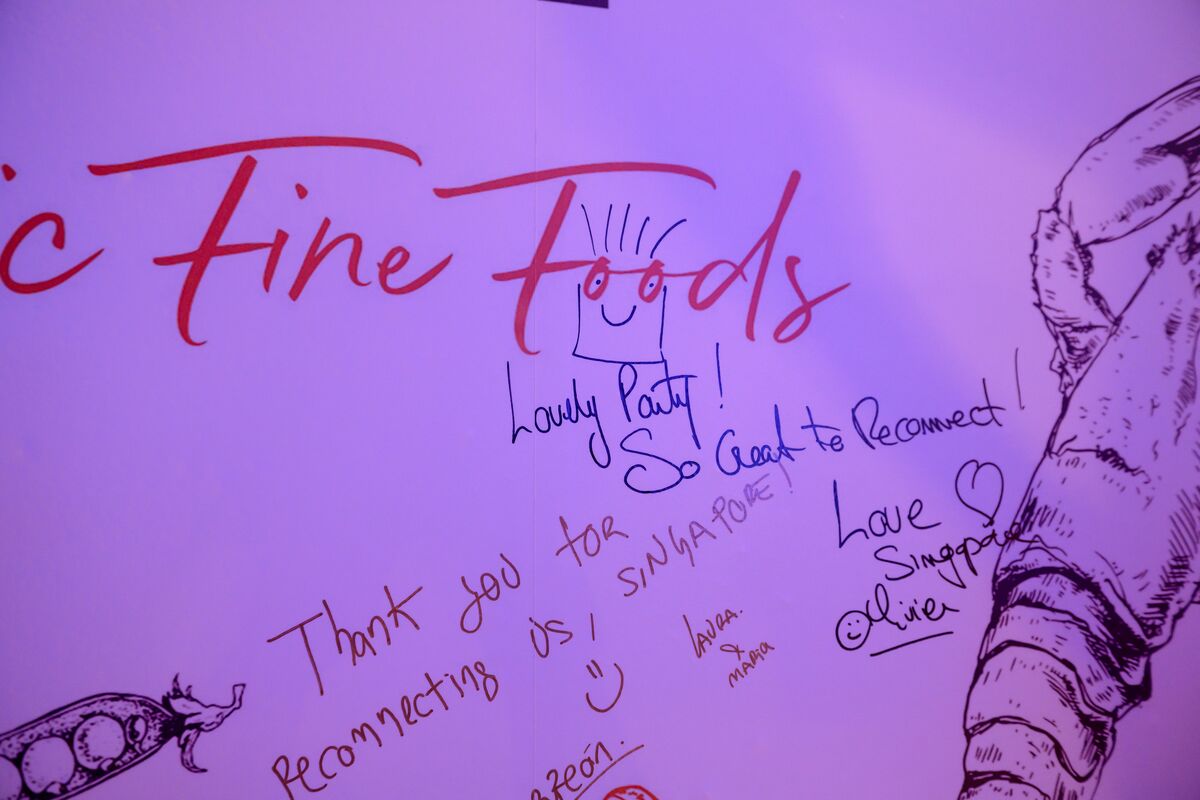 c Fine Foods
Lovely Party!
So Great to Reconnect!
Love
Singapore
Olivier
Thank you for
Reconnecting us, SINGAPORE!
LAURA.
&
MARIA